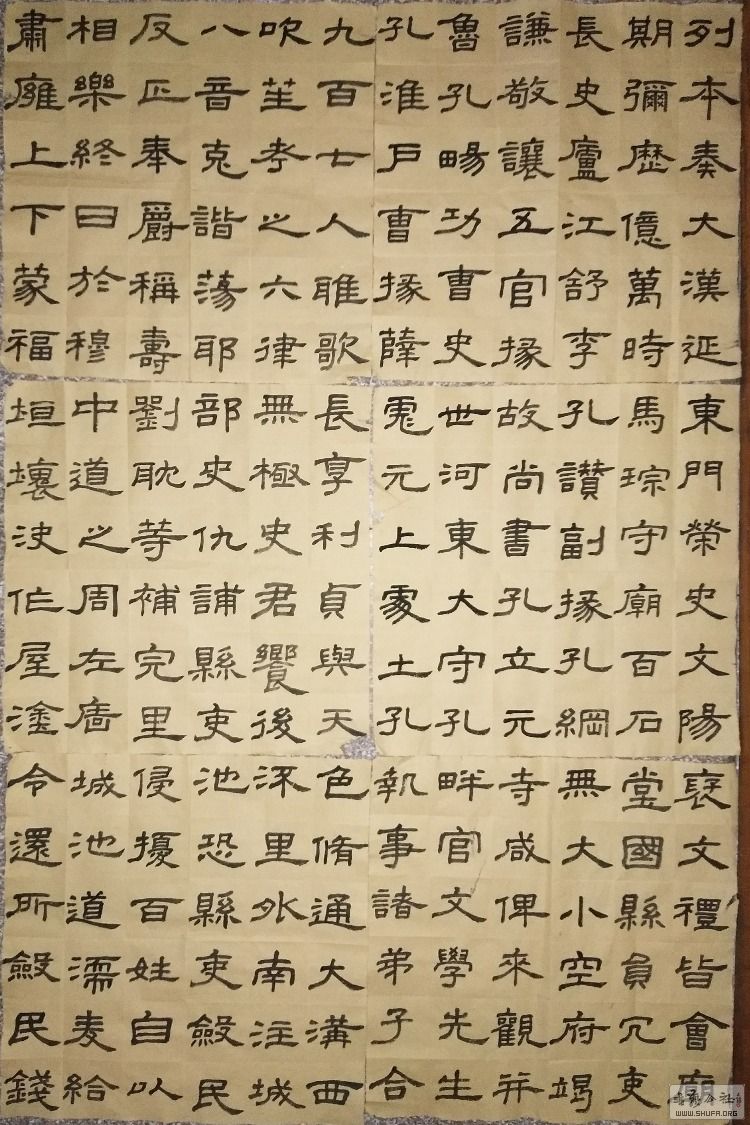 列本奏大漢延
期彌歷億萬時
長史廬江舒李
謙敬讓五官掾
魯孔暘功曹史
孔淮戶曹掾薛
東門榮史文陽
馬琮守廟百石
孔讚副掾孔綱
故尚書孔立元
世河東大守孔
彪元上處土孔
裦文禮皆會廟
堂國縣員冗吏
無大小空府竭
寺咸俾來觀并
畔官文學先生
執事諸弟子合
九百七人雅歌
吹笙考之六律
八音克諧蕩耶
反正奉爵稱壽
相樂終日於穆
肅廱上下蒙福
長享利貞與天
無極史君饗後
部史仇誧縣吏
劉耽等補完里
中道之周左廧
垣壞決作屋塗
色脩通大溝西
流里外南注城
池恐縣吏斂民
侵擾百姓自以
城池道濡麦給
令還所斂民錢
WWW.SHUFA.ORG